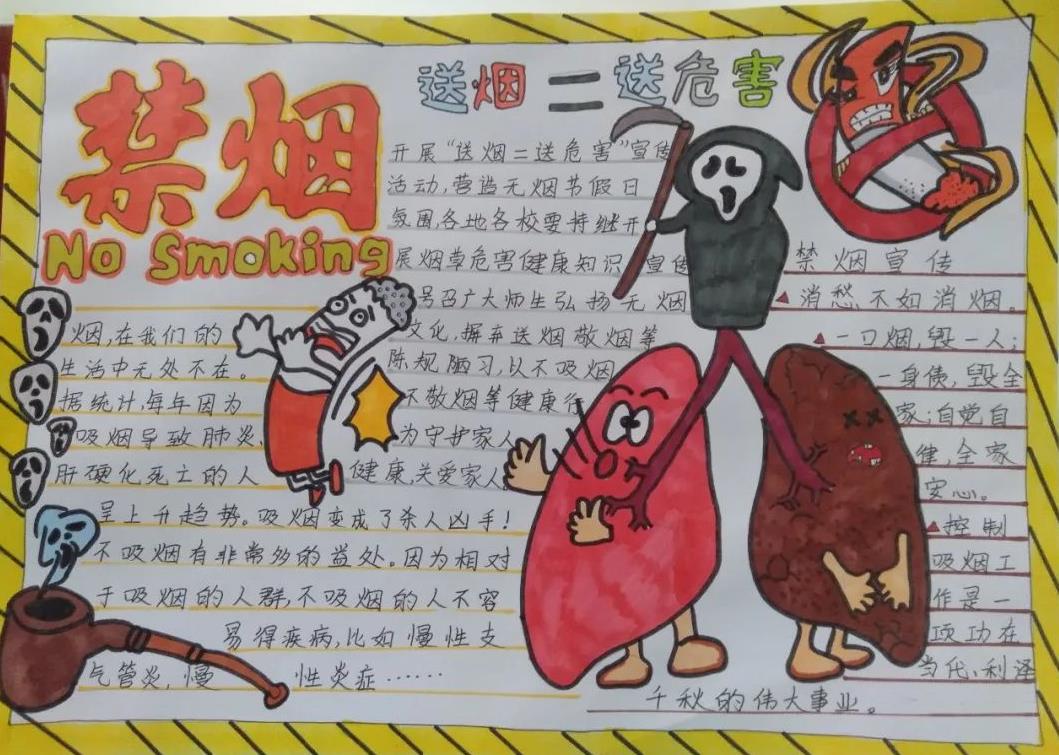 禁烟
No Smoking
送烟=送危害
烟,在我们的
生活中无处不在。
据统计,每年因为
吸烟导致肺炎、
肝硬化死亡的人
呈上升趋势。吸烟变成了杀人凶手!
不吸烟有非常多的益处。因为相对
于吸烟的人群,不吸烟的人不容
易得疾病,比如慢性支
气管炎,慢性炎症……
开展“送烟=送危害”宣传
活动,营造无烟节假日
氛围,各地各校要持继开
展烟草危害健康知识宣传
号召广大师生弘扬无烟
文化,摒弃送烟敬烟等
陈规陋习,以不吸烟
不敬烟等健康行
为守护家人
健康,关爱家人
禁烟宣传
▲消愁不如消烟。
▲一口烟,毁一人;
一身债,毁全
家;自觉自
律,全家
安心。
▲控制
吸烟工
作是一
项功在
当代、利泽
千秋的伟大事业。